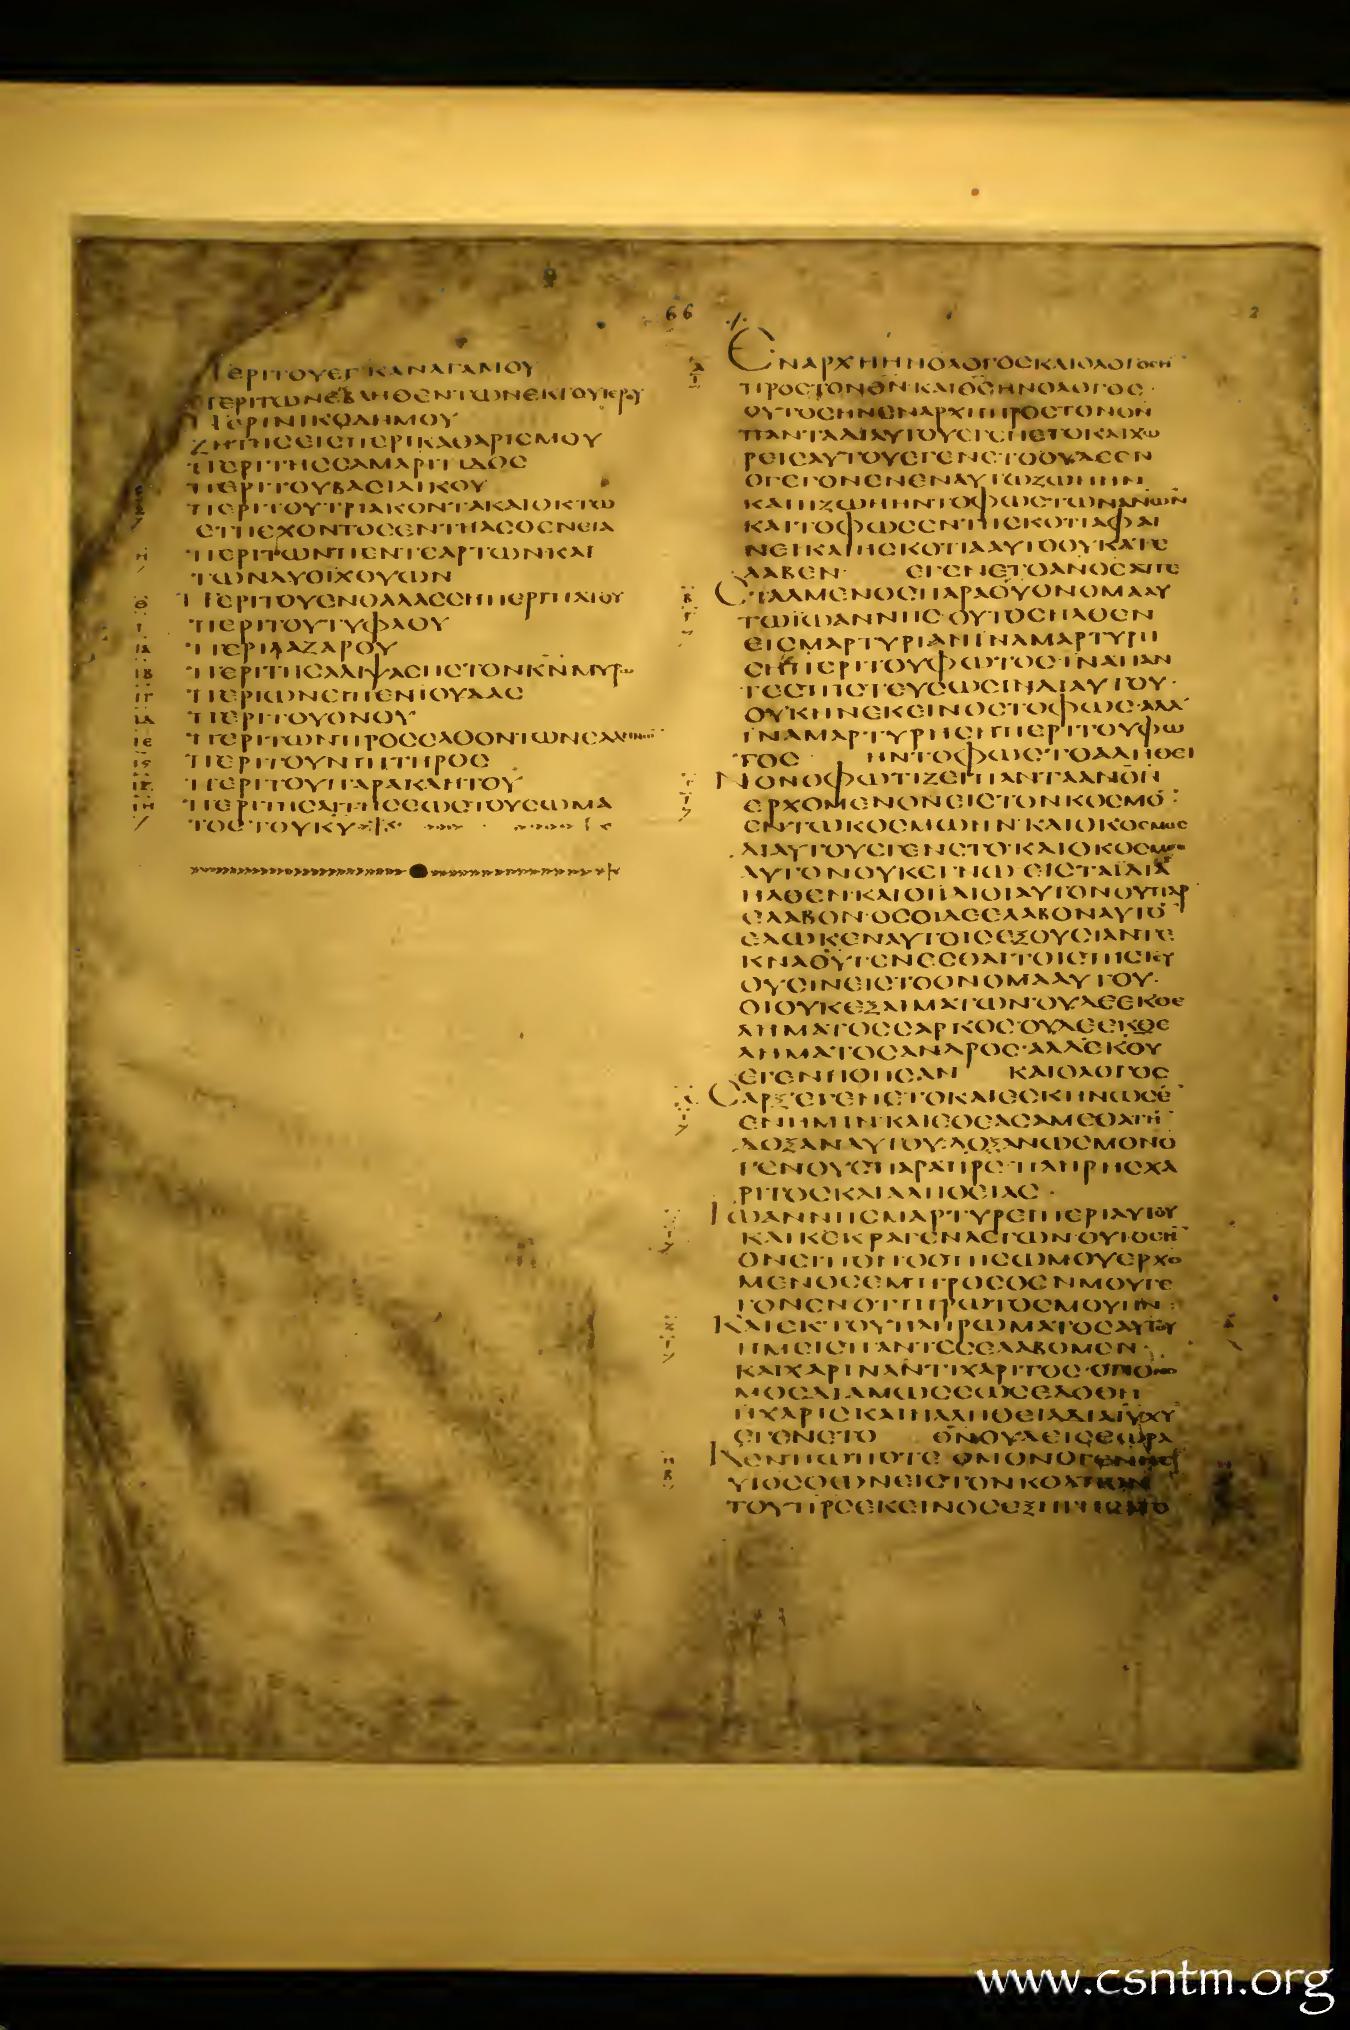 66
2
ΠΕΡΙΤΟΥΕΓΚΑΝΑΓΑΜΟΥ
ΠΕΡΙΤΩΝΕΚΒΛΗΘΕΝΤΩΝΕΚΤΟΥΙΕΡΟΥ
ΠΕΡΙΝΙΚΟΔΗΜΟΥ
ΖΗΤΗΣΕΙΣΠΕΡΙΚΑΘΑΡΙΣΜΟΥ
ΠΕΡΙΤΗΣΣΑΜΑΡΙΤΙΔΟΣ
ΠΕΡΙΤΟΥΒΑΣΙΛΙΚΟΥ
ΠΕΡΙΤΟΥΤΡΙΑΚΟΝΤΑΚΑΙΟΚΤΩ
ΕΤΗΕΧΟΝΤΟΣΕΝΤΗΑΣΘΕΝΕΙΑ
Η ΠΕΡΙΤΩΝΠΕΝΤΕΑΡΤΩΝΚΑΙ
ΤΩΝΔΥΟΙΧΘΥΩΝ
Θ ΠΕΡΙΤΟΥΕΝΘΑΛΑΣΣΗΠΕΡΙΠΑΤΟΥ
Ι ΠΕΡΙΤΟΥΤΥΦΛΟΥ
ΙΑ ΠΕΡΙΛΑΖΑΡΟΥ
ΙΒ ΠΕΡΙΤΗΣΑΛΙΨΑΣΗΣΤΟΝΚΝΜΥΡΩ
ΙΓ ΠΕΡΙΩΝΕΙΠΕΝΙΟΥΔΑΣ
ΙΔ ΠΕΡΙΤΟΥΟΝΟΥ
ΙΕ ΠΕΡΙΤΩΝΠΡΟΣΕΛΘΟΝΤΩΝΕΛΛΗΝΩΝ
ΙϚ ΠΕΡΙΤΟΥΝΙΠΤΗΡΟΣ
ΙΖ ΠΕΡΙΤΟΥΠΑΡΑΚΛΗΤΟΥ
ΙΗ ΠΕΡΙΤΗΣΑΙΤΗΣΕΩΣΤΟΥΣΩΜΑ
ΤΟΣΤΟΥΚΥ
ΕΝΑΡΧΗΗΝΟΛΟΓΟΣΚΑΙΟΛΟΓΟΣΗ
ΠΡΟΣΤΟΝΘΝΚΑΙΘΣΗΝΟΛΟΓΟΣ·
ΟΥΤΟΣΗΝΕΝΑΡΧΗΠΡΟΣΤΟΝΘΝ
ΠΑΝΤΑΔΙΑΥΤΟΥΕΓΕΝΕΤΟΚΑΙΧΩ
ΡΕΙΣΑΥΤΟΥΕΓΕΝΕΤΟΟΥΔΕΕΝ
ΟΓΕΓΟΝΕΝΕΝΑΥΤΩΖΩΗΗΝ
ΚΑΙΗΖΩΗΗΝΤΟΦΩΣΤΩΝΑΝΩΝ
ΚΑΙΤΟΦΩΣΕΝΤΗΣΚΟΤΙΑΦΑΙ
ΝΕΙΚΑΙΗΣΚΟΤΙΑΑΥΤΟΟΥΚΑΤΕ
ΛΑΒΕΝ· ΕΓΕΝΕΤΟΑΝΟΣΑΠΕ
ΣΤΑΛΜΕΝΟΣΠΑΡΑΘΥΟΝΟΜΑΑΥ
ΤΩΙΩΑΝΝΗΣ·ΟΥΤΟΣΗΛΘΕΝ
ΕΙΣΜΑΡΤΥΡΙΑΝΙΝΑΜΑΡΤΥΡΗ
ΣΗΠΕΡΙΤΟΥΦΩΤΟΣ·ΙΝΑΠΑΝ
ΤΕΣΠΙΣΤΕΥΣΩΣΙΝΔΙΑΥΤΟΥ·
ΟΥΚΗΝΕΚΕΙΝΟΣΤΟΦΩΣ·ΑΛΛ
ΙΝΑΜΑΡΤΥΡΗΣΗΠΕΡΙΤΟΥΦΩ
ΤΟΣ ΗΝΤΟΦΩΣΤΟΑΛΗΘΕΙ
ΝΟΝΟΦΩΤΙΖΕΙΠΑΝΤΑΑΝΟΝ
ΕΡΧΟΜΕΝΟΝΕΙΣΤΟΝΚΟΣΜΟ
ΕΝΤΩΚΟΣΜΩΗΝ·ΚΑΙΟΚΟΣΜΟΣ
ΔΙΑΥΤΟΥΕΓΕΝΕΤΟ·ΚΑΙΟΚΟΣΜΟΣ
ΑΥΤΟΝΟΥΚΕΓΝΩ·ΕΙΣΤΑΙΔΙΑ
ΗΛΘΕΝ·ΚΑΙΟΙΙΔΙΟΙΑΥΤΟΝΟΥΠΑΡ
ΕΛΑΒΟΝ·ΟΣΟΙΔΕΕΛΑΒΟΝΑΥΤΟ
ΕΔΩΚΕΝΑΥΤΟΙΣΕΞΟΥΣΙΑΝΤΕ
ΚΝΑΘΥΓΕΝΕΣΘΑΙΤΟΙΣΠΙΣΤΕΥ
ΟΥΣΙΝΕΙΣΤΟΟΝΟΜΑΑΥΤΟΥ·
ΟΙΟΥΚΕΞΑΙΜΑΤΩΝ·ΟΥΔΕΕΚΘΕ
ΛΗΜΑΤΟΣΣΑΡΚΟΣ·ΟΥΔΕΕΚΘΕ
ΛΗΜΑΤΟΣΑΝΔΡΟΣ·ΑΛΛΕΚΘΥ
ΕΓΕΝΗΘΗΣΑΝ ΚΑΙΟΛΟΓΟΣ
ΣΑΡΞΕΓΕΝΕΤΟΚΑΙΕΣΚΗΝΩΣΕ
ΕΝΗΜΙΝ·ΚΑΙΕΘΕΑΣΑΜΕΘΑΤΗ
ΔΟΞΑΝΑΥΤΟΥ·ΔΟΞΑΝΩΣΜΟΝΟ
ΓΕΝΟΥΣΠΑΡΑΠΡΣ·ΠΛΗΡΗΣΧΑ
ΡΙΤΟΣΚΑΙΑΛΗΘΕΙΑΣ·
ΙΩΑΝΝΗΣΜΑΡΤΥΡΕΙΠΕΡΙΑΥΤΟΥ
ΚΑΙΚΕΚΡΑΓΕΝΛΕΓΩΝ·ΟΥΤΟΣΗ
ΟΝΕΙΠΟΝΟΟΠΙΣΩΜΟΥΕΡΧΟ
ΜΕΝΟΣΕΜΠΡΟΣΘΕΝΜΟΥΓΕ
ΓΟΝΕΝΟΤΙΠΡΩΤΟΣΜΟΥΗΝ·
ΚΑΙΕΚΤΟΥΠΛΗΡΩΜΑΤΟΣΑΥΤΟΥ
ΗΜΕΙΣΠΑΝΤΕΣΕΛΑΒΟΜΕΝ·
ΚΑΙΧΑΡΙΝΑΝΤΙΧΑΡΙΤΟΣ·ΟΤΙΟΝΟ
ΜΟΣΔΙΑΜΩΣΕΩΣΕΔΟΘΗ
ΗΧΑΡΙΣΚΑΙΗΑΛΗΘΕΙΑΔΙΑΙΥΧΥ
ΕΓΕΝΕΤΟ ΘΝΟΥΔΕΙΣΕΩΡΑ
ΚΕΝΠΩΠΟΤΕ·ΟΜΟΝΟΓΕΝΗΣ
ΥΙΟΣΟΩΝΕΙΣΤΟΝΚΟΛΠΟΝ
ΤΟΥΠΡΣΕΚΕΙΝΟΣΕΞΗΓΗΣΑΤΟ
www.csntm.org